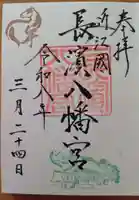 奉拝
近江國
長濱八幡宮
令和八年
三月二十四日